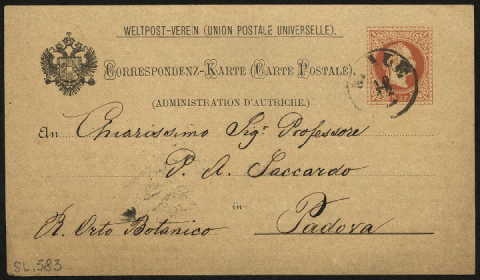 WELTPOST-VEREIN (UNION POSTALE UNIVERSELLE).
CORRESPONDENZ-KARTE (CARTE POSTALE)
(ADMINISTRATION D'AUTRICHE.)
An Chiarissimo Sigr Professore
P. A. Saccardo
in
R. Orto Botanico Padova
SL.583